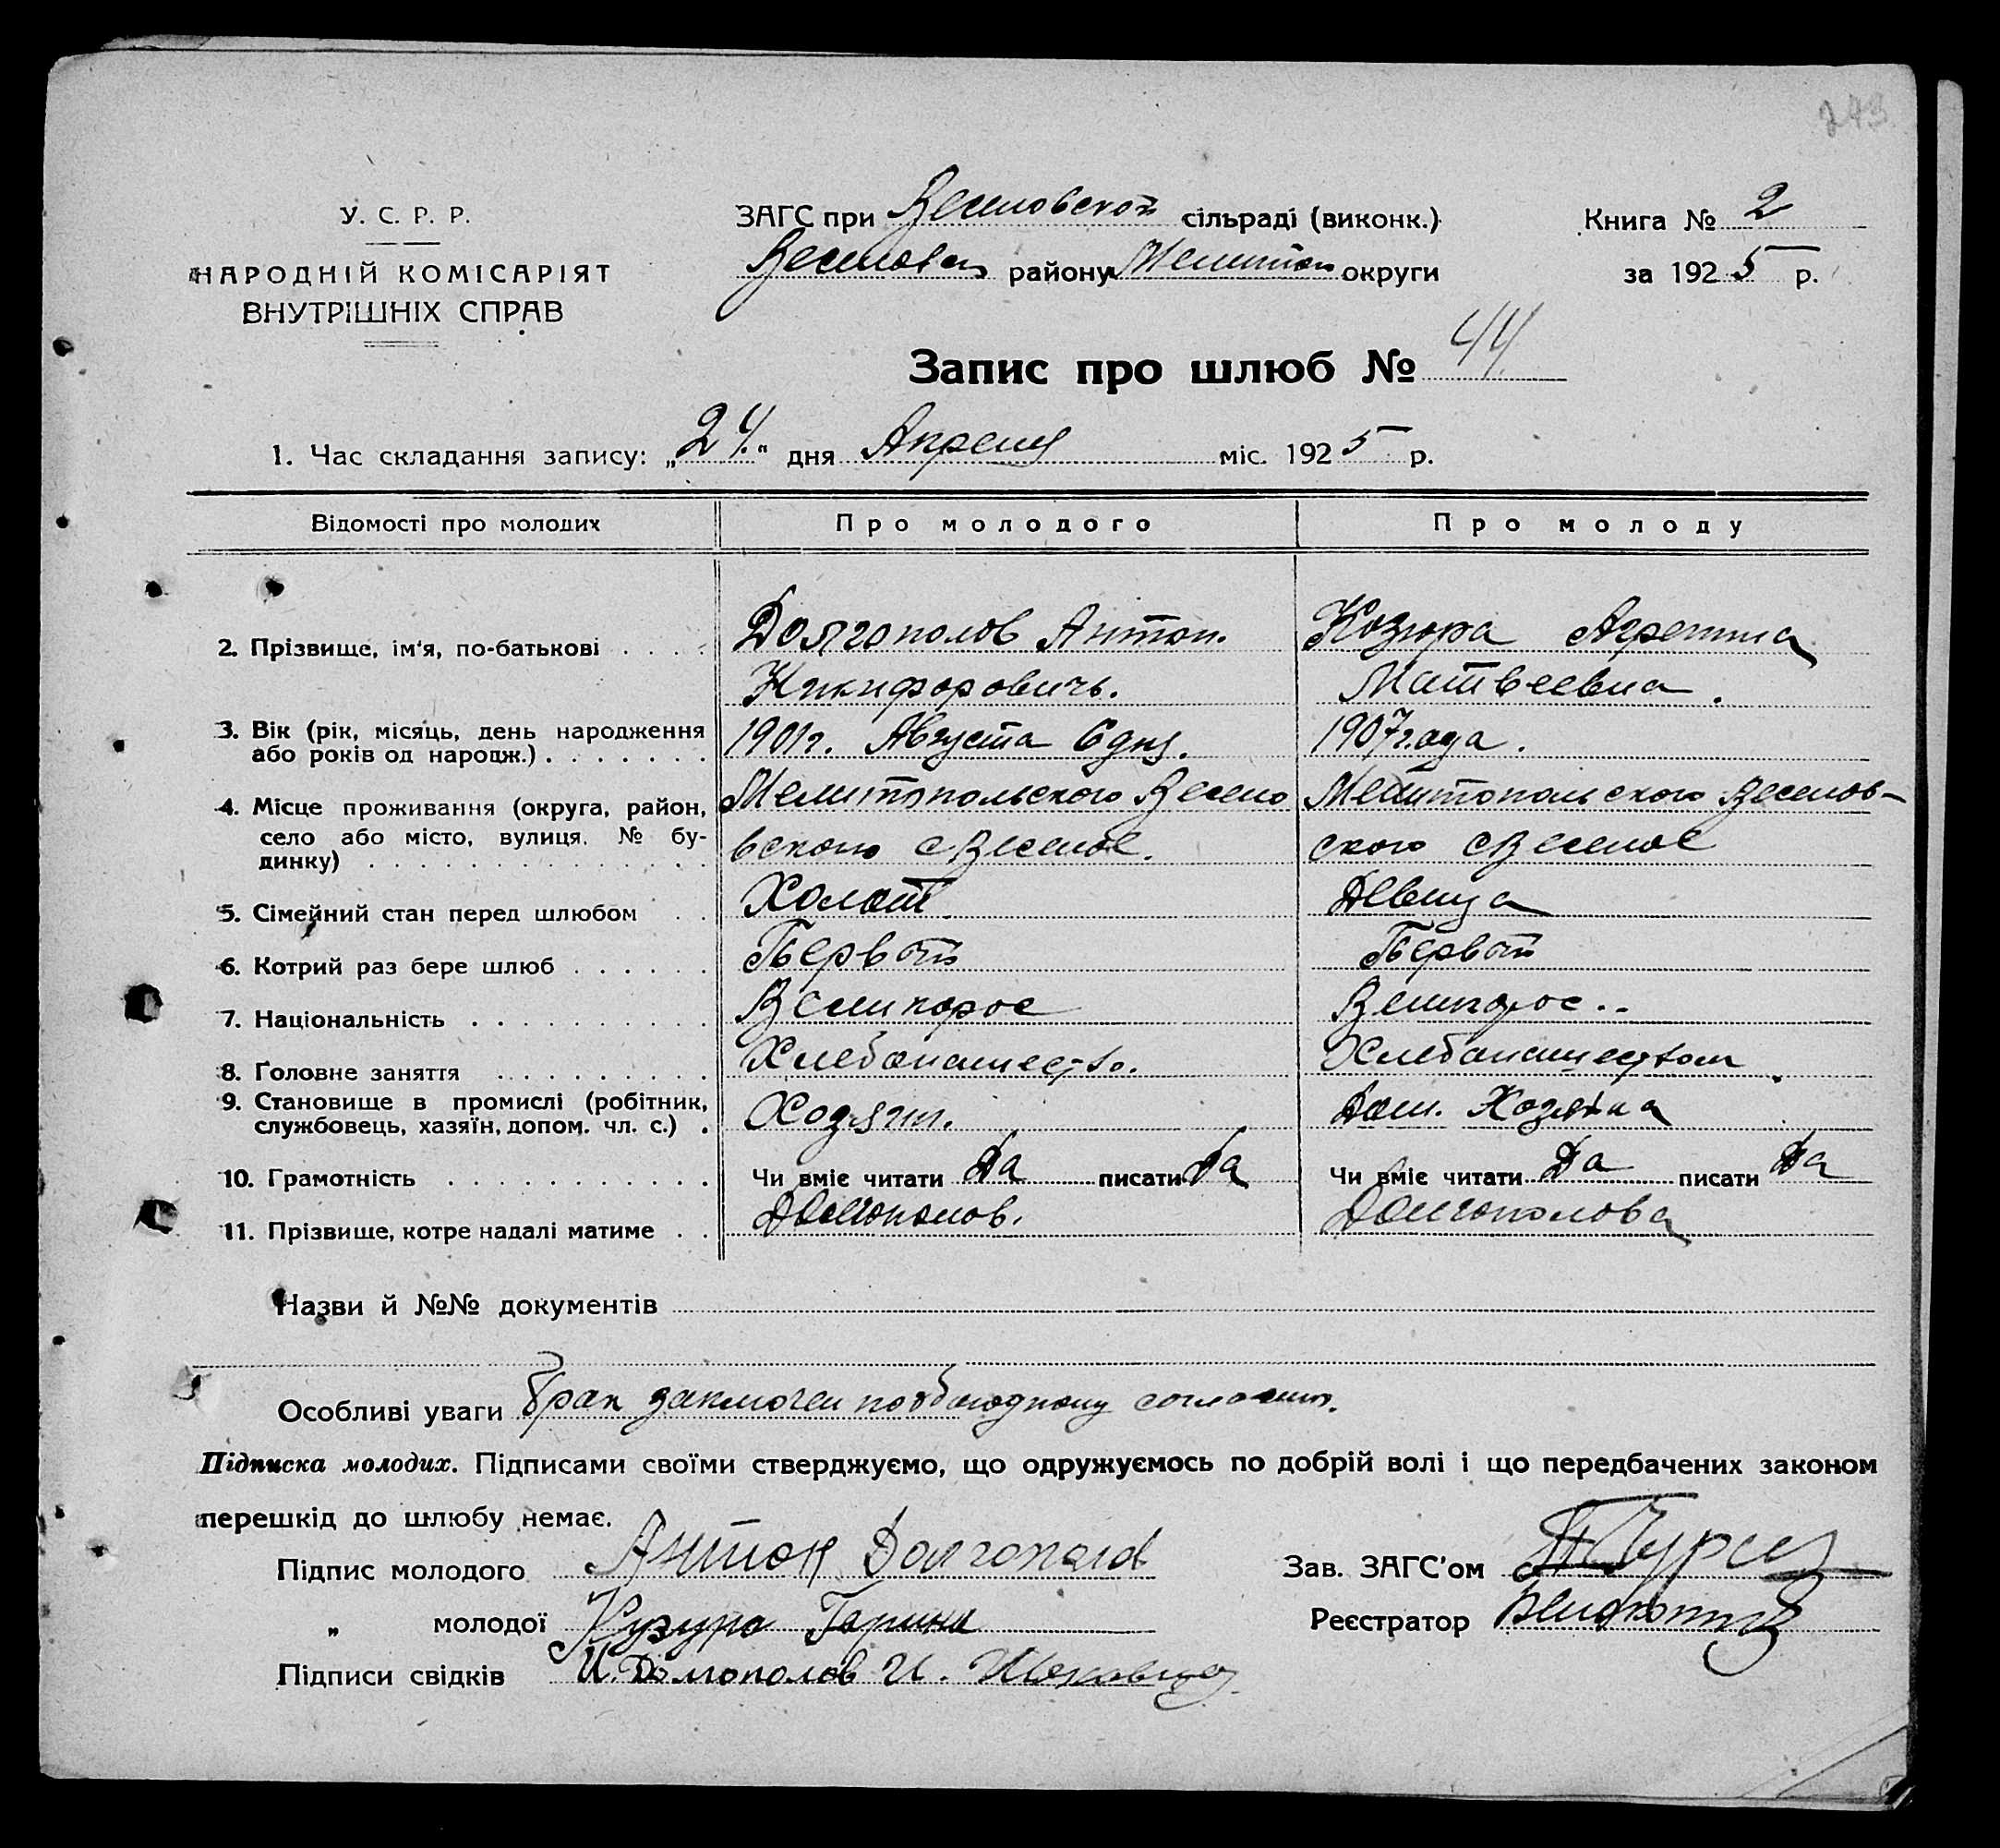 243
У. С. Р. Р.
НАРОДНІЙ КОМІСАРІЯТ
ВНУТРІШНІХ СПРАВ
ЗАГС при Веселовской сільраді (виконк.)
Веселовск району Мелитоп округи
Книга № 2
за 1925 р.
Запис про шлюб № 44
1. Час складання запису: „24" дня Апреля міс. 1925 р.
Відомості про молодих Про молодого Про молоду
2. Прізвище, ім'я, по-батькові Долгополов Антон. Козюра Агрепина
Никифорович. Матвеевна.
3. Вік (рік, місяць, день народження 1901г. Августа 6 дня. 1907 года.
або років од народж.)
4. Місце проживання (округа, район, Мелитопольского Весело Мелитопольского Веселов-
село або місто, вулиця, № бу- вского с Веселое. ского с Веселое
динку)
5. Сімейний стан перед шлюбом Холост Девица
6. Котрий раз бере шлюб Первой Первой
7. Національність Великорос Великорос..
8. Головне заняття Хлебопашество. Хлебопашеством
9. Становище в промислі (робітник, Хозяин. Дом. Хозяйка
службовець, хазяїн, допом. чл. с.)
10. Грамотність Чи вміє читати Да писати Да Чи вміє читати Да писати Да
11. Прізвище, котре надалі матиме Долгополов. Долгополова
Назви й №№ документів
Особливі уваги Брак заключен по обоюдному согласию.
Підписка молодих. Підписами своїми стверджуємо, що одружуємось по добрій волі і що передбачених законом
перешкід до шлюбу немає.
Підпис молодого Антон Долгополов Зав. ЗАГС'ом
„ молодої Кузура Реєстратор
Підписи свідків И. Долгополов И.